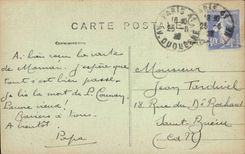 CARTE POSTALE
CORRESPONDANCE
A bien reçu la carte
de Maman. J'espère que
tout s'est bien passé.
Je lis la mort de
Bonne vieux!
Baisers à tous.
A bientôt
Papa
PARIS
AV. D'
Monsieur
Jean Tardivel
18 Rue du Dr Rochard
Saint Brieuc
(C du N)